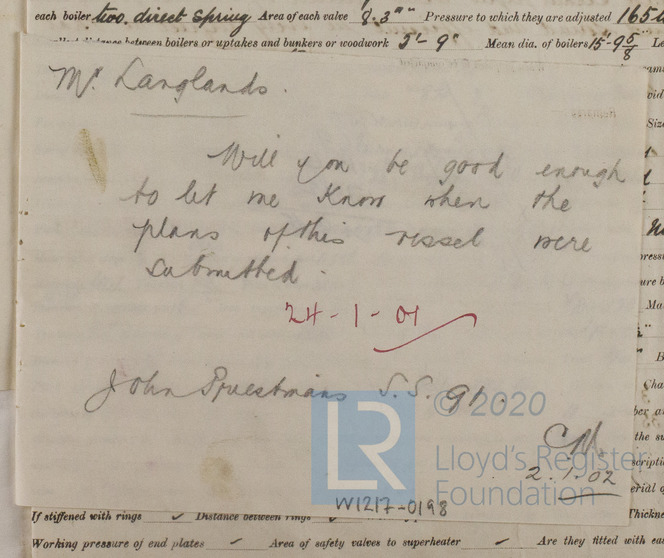 each boiler two. direct spring Area of each valve 8.3"" Pressure to which they are adjusted 165
between boilers or uptakes and bunkers or woodwork 3'-9" Mean dia. of boilers 15'-9 5/8
Mr. Langlands.
Will you be good enough
to let me know when the
plans of this vessel were
submitted.
24-1-01
John Priestmans S.S. 91.
© 2020
LR
Lloyd's Register
Foundation
CM
2.1.02
W1217-0198
If stiffened with rings ✓ Distance between rings
Working pressure of end plates Area of safety valves to superheater Are they fitted with